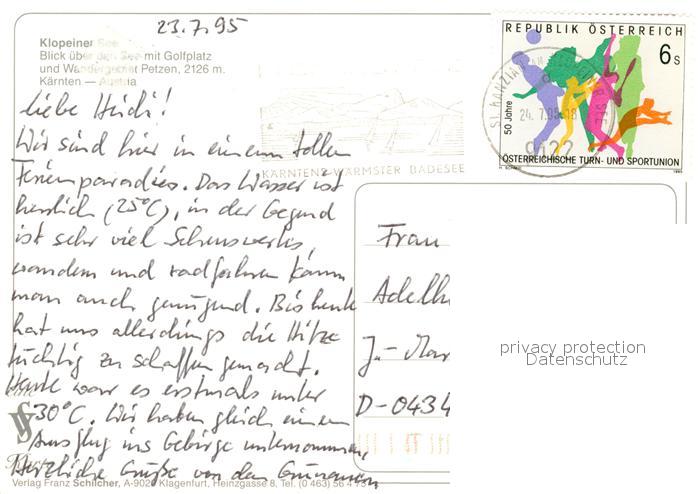 23.7.95
Klopeiner See
Blick über den See mit Golfplatz
und Wandergebiet Petzen, 2126 m.
Kärnten — Austria
REPUBLIK ÖSTERREICH
6 S
50 Jahre
ÖSTERREICHISCHE TURN- UND SPORTUNION
24.7.95-18
9122
KÄRNTENS WÄRMSTER BADESEE
liebe Heidi!
Wir sind hier in einem tollen
Ferienparadies. Das Wasser ist
herrlich (25°C), in der Gegend
ist sehr viel Sehenswertes,
wandern und radfahren kann
man auch genügend. Bis heute
hat uns allerdings die Hitze
tüchtig zu schaffen gemacht.
Heute war es erstmals unter
30°C. Wir haben gleich einen
Ausflug ins Gebirge unternommen.
Herzliche Grüße von den
Frau
Adelh
J.-Mar
D-0434
privacy protection
Datenschutz
Verlag Franz Schilcher, A-9020 Klagenfurt, Heinzgasse 8, Tel. (0 463) 56 4